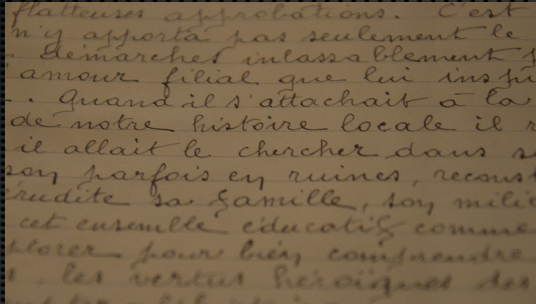 flatteuses approbations. C'est
n'y apporta pas seulement le
démarches inlassablement
amour filial que lui
. Quand il s'attachait à la
de notre histoire locale il
il allait le chercher dans
son parfois en ruines,
érudite sa famille, son
cet ensemble éducatif comme
pour bien comprendre
les vertus héroïques des